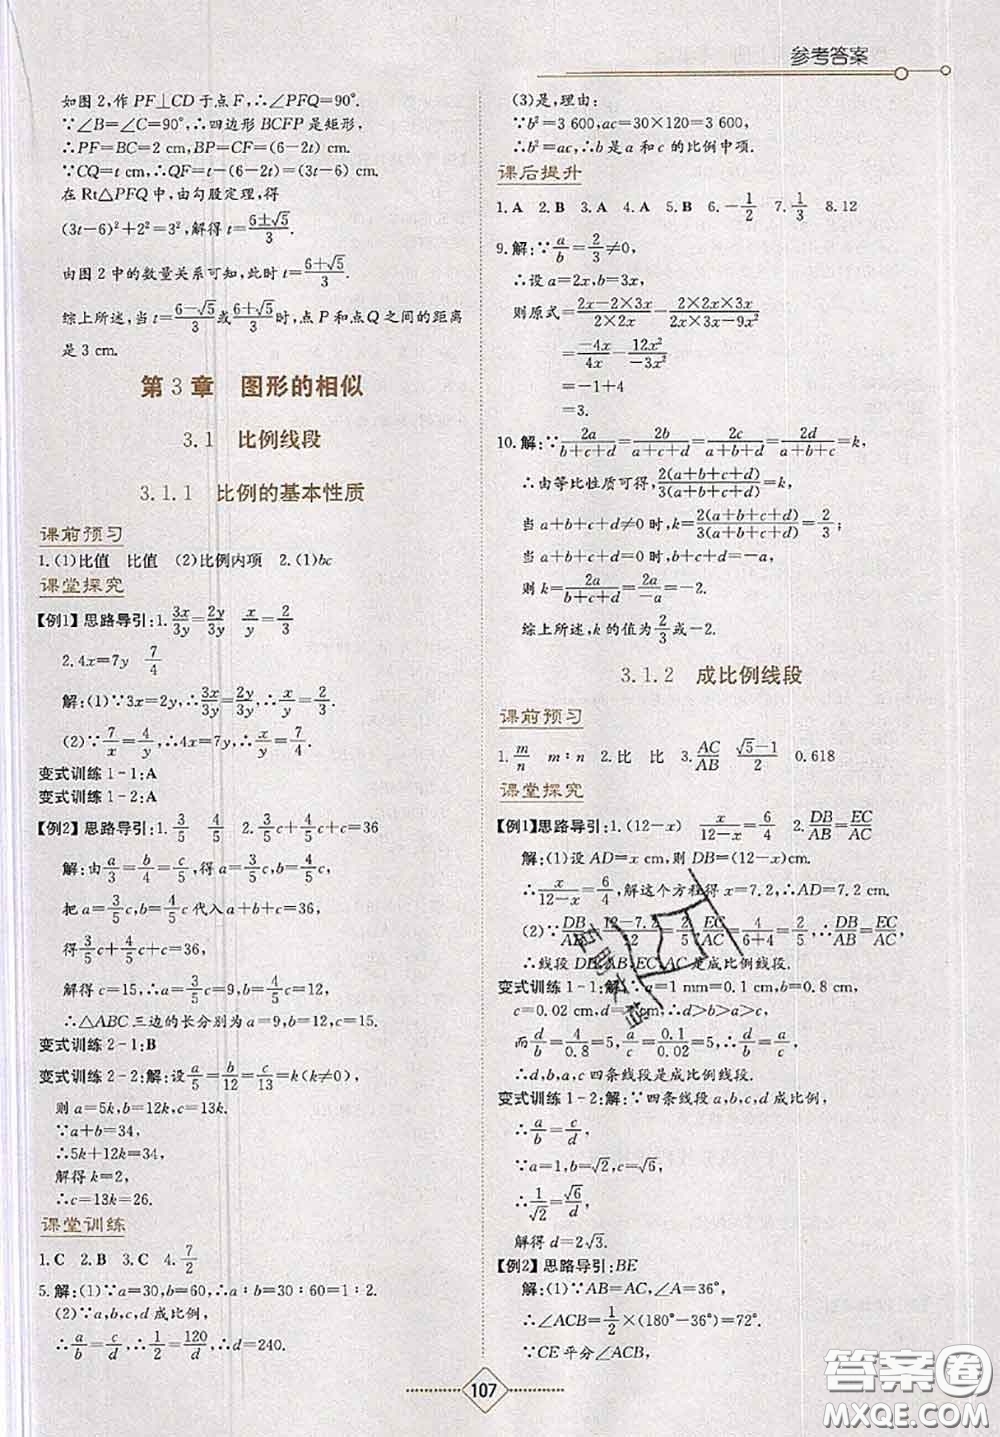 参考答案
如图2,作PF⊥CD于点F,∴∠PFQ=90°.
∵∠B=∠C=90°,∴四边形BCFP是矩形,
∴PF=BC=2 cm,BP=CF=(6-2t) cm.
∵CQ=t cm,∴QF=(6-2t)-t=(6-3t) cm.
在Rt△PFQ中,由勾股定理,得
(3t-6)²+2²=3²,解得t=(6±√5)/3.
由图2中的数量关系可知,此时t=(6+√5)/3.
综上所述,当t=(6-√5)/3或(6+√5)/3时,点P和点Q之间的距离
是3 cm.
第3章 图形的相似
3.1 比例线段
3.1.1 比例的基本性质
课前预习
1.(1)比值 比值 (2)比例内项 2.(1)bc
课堂探究
【例1】思路导引:1.3x/3y=2y/3y x/y=2/3
2.4x=7y 7/4
解:(1)∵3x=2y,∴3x/3y=2y/3y,∴x/y=2/3.
(2)∵7/x=4/y,∴4x=7y,∴x/y=7/4.
变式训练1-1:A
变式训练1-2:A
【例2】思路导引:1.3/5 4/5 2.3/5c+4/5c+c=36
解:由a/3=b/4=c/5,得a=3/5c,b=4/5c,
把a=3/5c,b=4/5c代入a+b+c=36,
得3/5c+4/5c+c=36,
解得c=15,∴a=3/5c=9,b=4/5c=12,
∴△ABC三边的长分别为a=9,b=12,c=15.
变式训练2-1:B
变式训练2-2:解:设a/5=b/12=c/13=k(k≠0),
则a=5k,b=12k,c=13k.
∵a+b=34,
∴5k+12k=34,
解得k=2,
∴c=13k=26.
课堂训练
1.C 2.B 3.C 4.7/2
5.解:(1)∵a=30,b=60,∴a∶b=30∶60=1∶2.
(2)∵a,b,c,d成比例,
∴a/b=c/d,∴1/2=120/d,∴d=240.
(3)是,理由:
∵b²=3 600,ac=30×120=3 600,
∴b²=ac,∴b是a和c的比例中项.
课后提升
1.A 2.B 3.A 4.A 5.B 6.-1/2 7.1/3 8.12
9.解:∵a/b=2/3≠0,
∴设a=2x,b=3x,
则原式=(2x-2×3x)/(2×2x)-(2×2x×3x)/(2x×3x-9x²)
=-4x/4x-12x²/-3x²
=-1+4
=3.
10.解:∵2a/(b+c+d)=2b/(a+c+d)=2c/(a+b+d)=2d/(a+b+c)=k,
∴由等比性质可得,2(a+b+c+d)/3(a+b+c+d)=k,
当a+b+c+d≠0时,k=2(a+b+c+d)/3(a+b+c+d)=2/3;
当a+b+c+d=0时,b+c+d=-a,
则k=2a/(b+c+d)=2a/-a=-2.
综上所述,k的值为2/3或-2.
3.1.2 成比例线段
课前预习
1.m/n m∶n 2.比 比 3.AC/AB (√5-1)/2 0.618
课堂探究
【例1】思路导引:1.(12-x) x/(12-x)=6/4 2.DB/AB=EC/AC
解:(1)设AD=x cm,则DB=(12-x)cm.
∴x/(12-x)=6/4,解这个方程得x=7.2,∴AD=7.2 cm.
(2)∵DB/AB=(12-7.2)/12=2/5,EC/AC=4/(6+4)=2/5,∴DB/AB=EC/AC,
∴线段DB,AB,EC,AC是成比例线段.
变式训练1-1:解:∵a=1 mm=0.1 cm,b=0.8 cm,
c=0.02 cm,d=4 cm,∴d>b>a>c,
而d/b=4/0.8=5,a/c=0.1/0.02=5,∴d/b=a/c,
∴d,b,a,c四条线段是成比例线段.
变式训练1-2:解:∵四条线段a,b,c,d成比例,
∴a/b=c/d,
∵a=1,b=√2,c=√6,
∴1/√2=√6/d,
解得d=2√3.
【例2】思路导引:BE
解:(1)∵AB=AC,∠A=36°,
∴∠ACB=1/2×(180°-36°)=72°.
∵CE平分∠ACB,
107
互助文档
答案圈
MXQE.COM